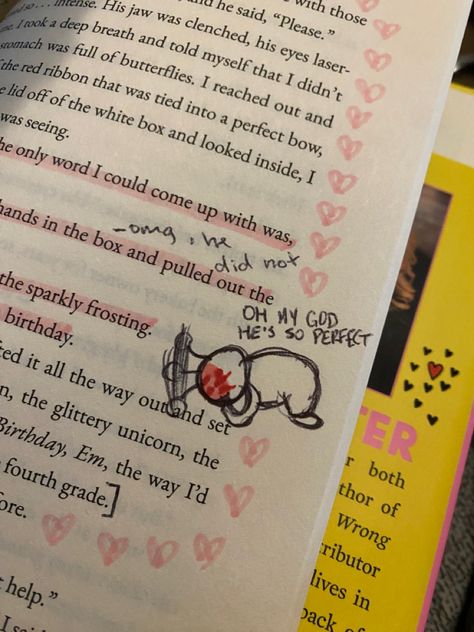 with those
and he said, "Please."
so . . . intense. His jaw was clenched, his eyes laser-
I took a deep breath and told myself that I didn't
stomach was full of butterflies. I reached out and
the red ribbon that was tied into a perfect bow,
lid off of the white box and looked inside, I
was seeing.
he only word I could come up with was,
- omg, he
hands in the box and pulled out the
did not
the sparkly frosting.
OH MY GOD
HE'S SO PERFECT
birthday.
ted it all the way out and set
n, the glittery unicorn, the
Birthday, Em, the way I'd
fourth grade.]
ore.
help."
I sai
ER
r both
thor of
Wrong
tributor
lives in
pack of